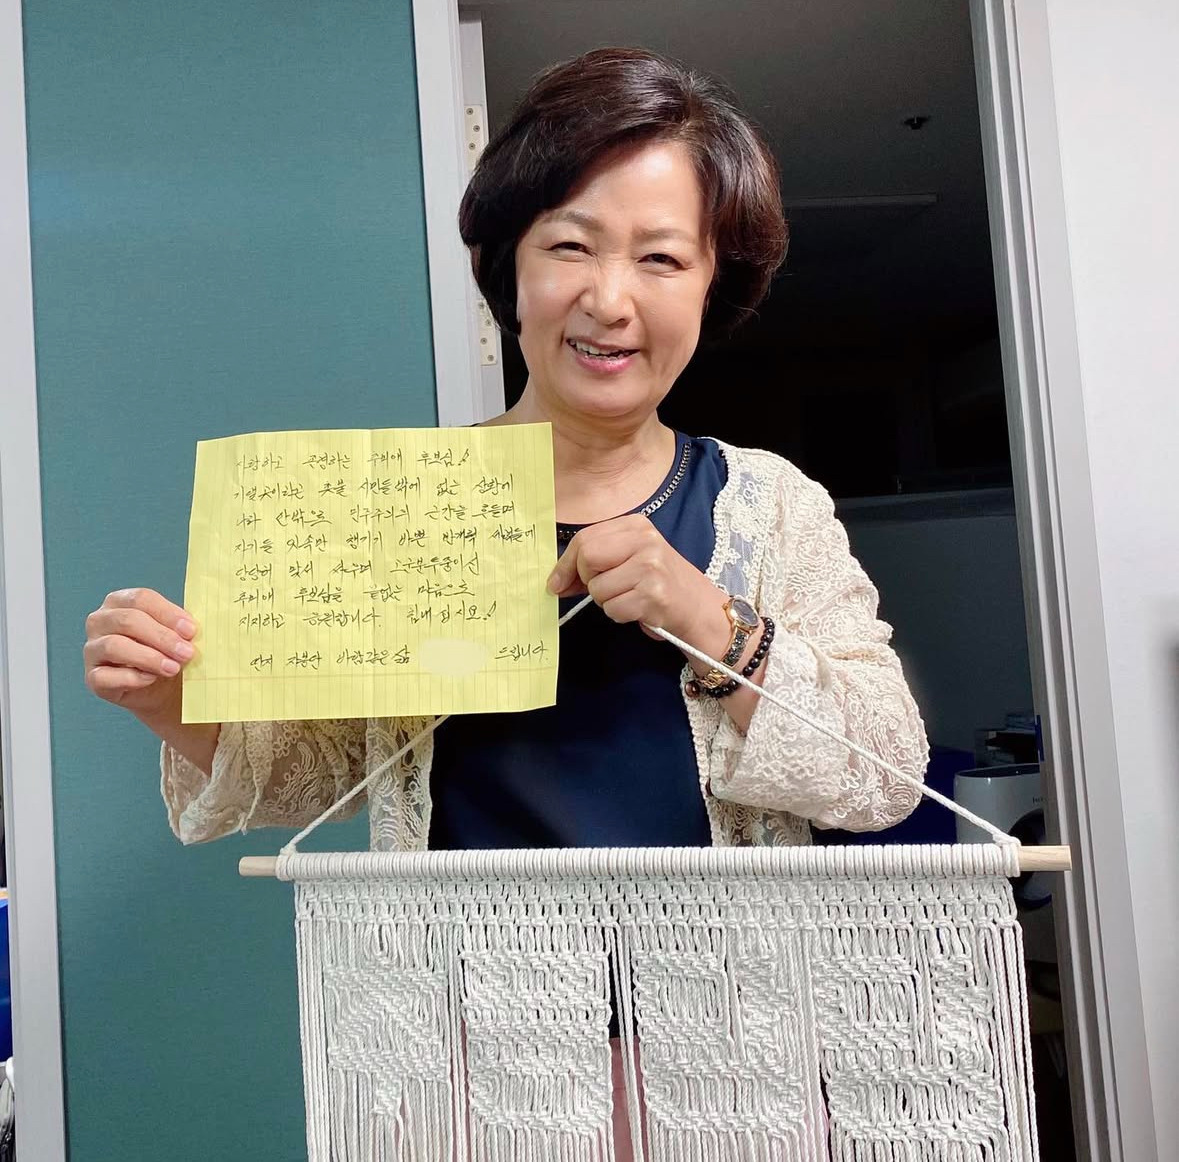 사랑하고 존경하는 추미애 후보님!!
기댈 곳이라곤 촛불 시민들밖에 없는 상황에
나라 안팎으로 민주주의의 근간을 흔들며
자기들 잇속만 챙기기 바쁜 반개혁 세력들에
당당히 맞서 싸우며 고군분투중이신
추미애 후보님을 끝없는 마음으로
지지하고 응원합니다. 힘내십시요!!
딴지 자봉단 바람같은삶 드립니다.